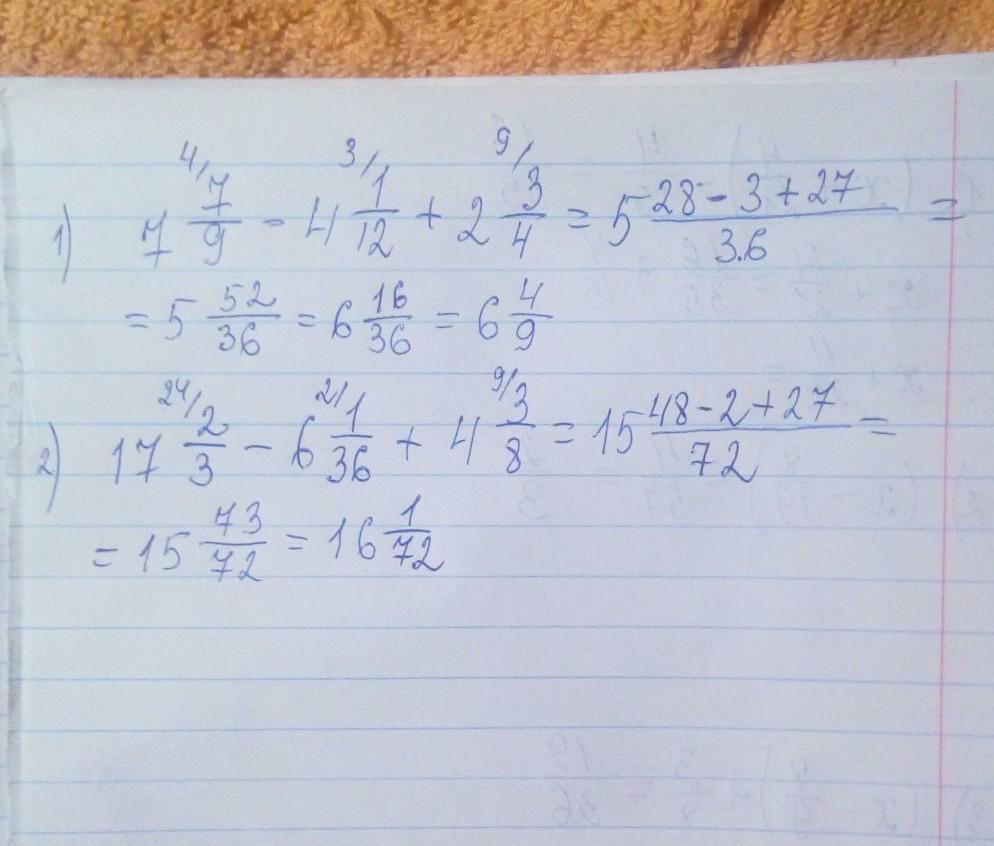 1) 7 4/7/9 - 4 3/1/12 + 2 9/3/4 = 5 28-3+27/3.6 =
= 5 52/36 = 6 16/36 = 6 4/9
2) 17 24/2/3 - 6 2/1/36 + 4 9/3/8 = 15 48-2+27/72 =
= 15 73/72 = 16 1/72